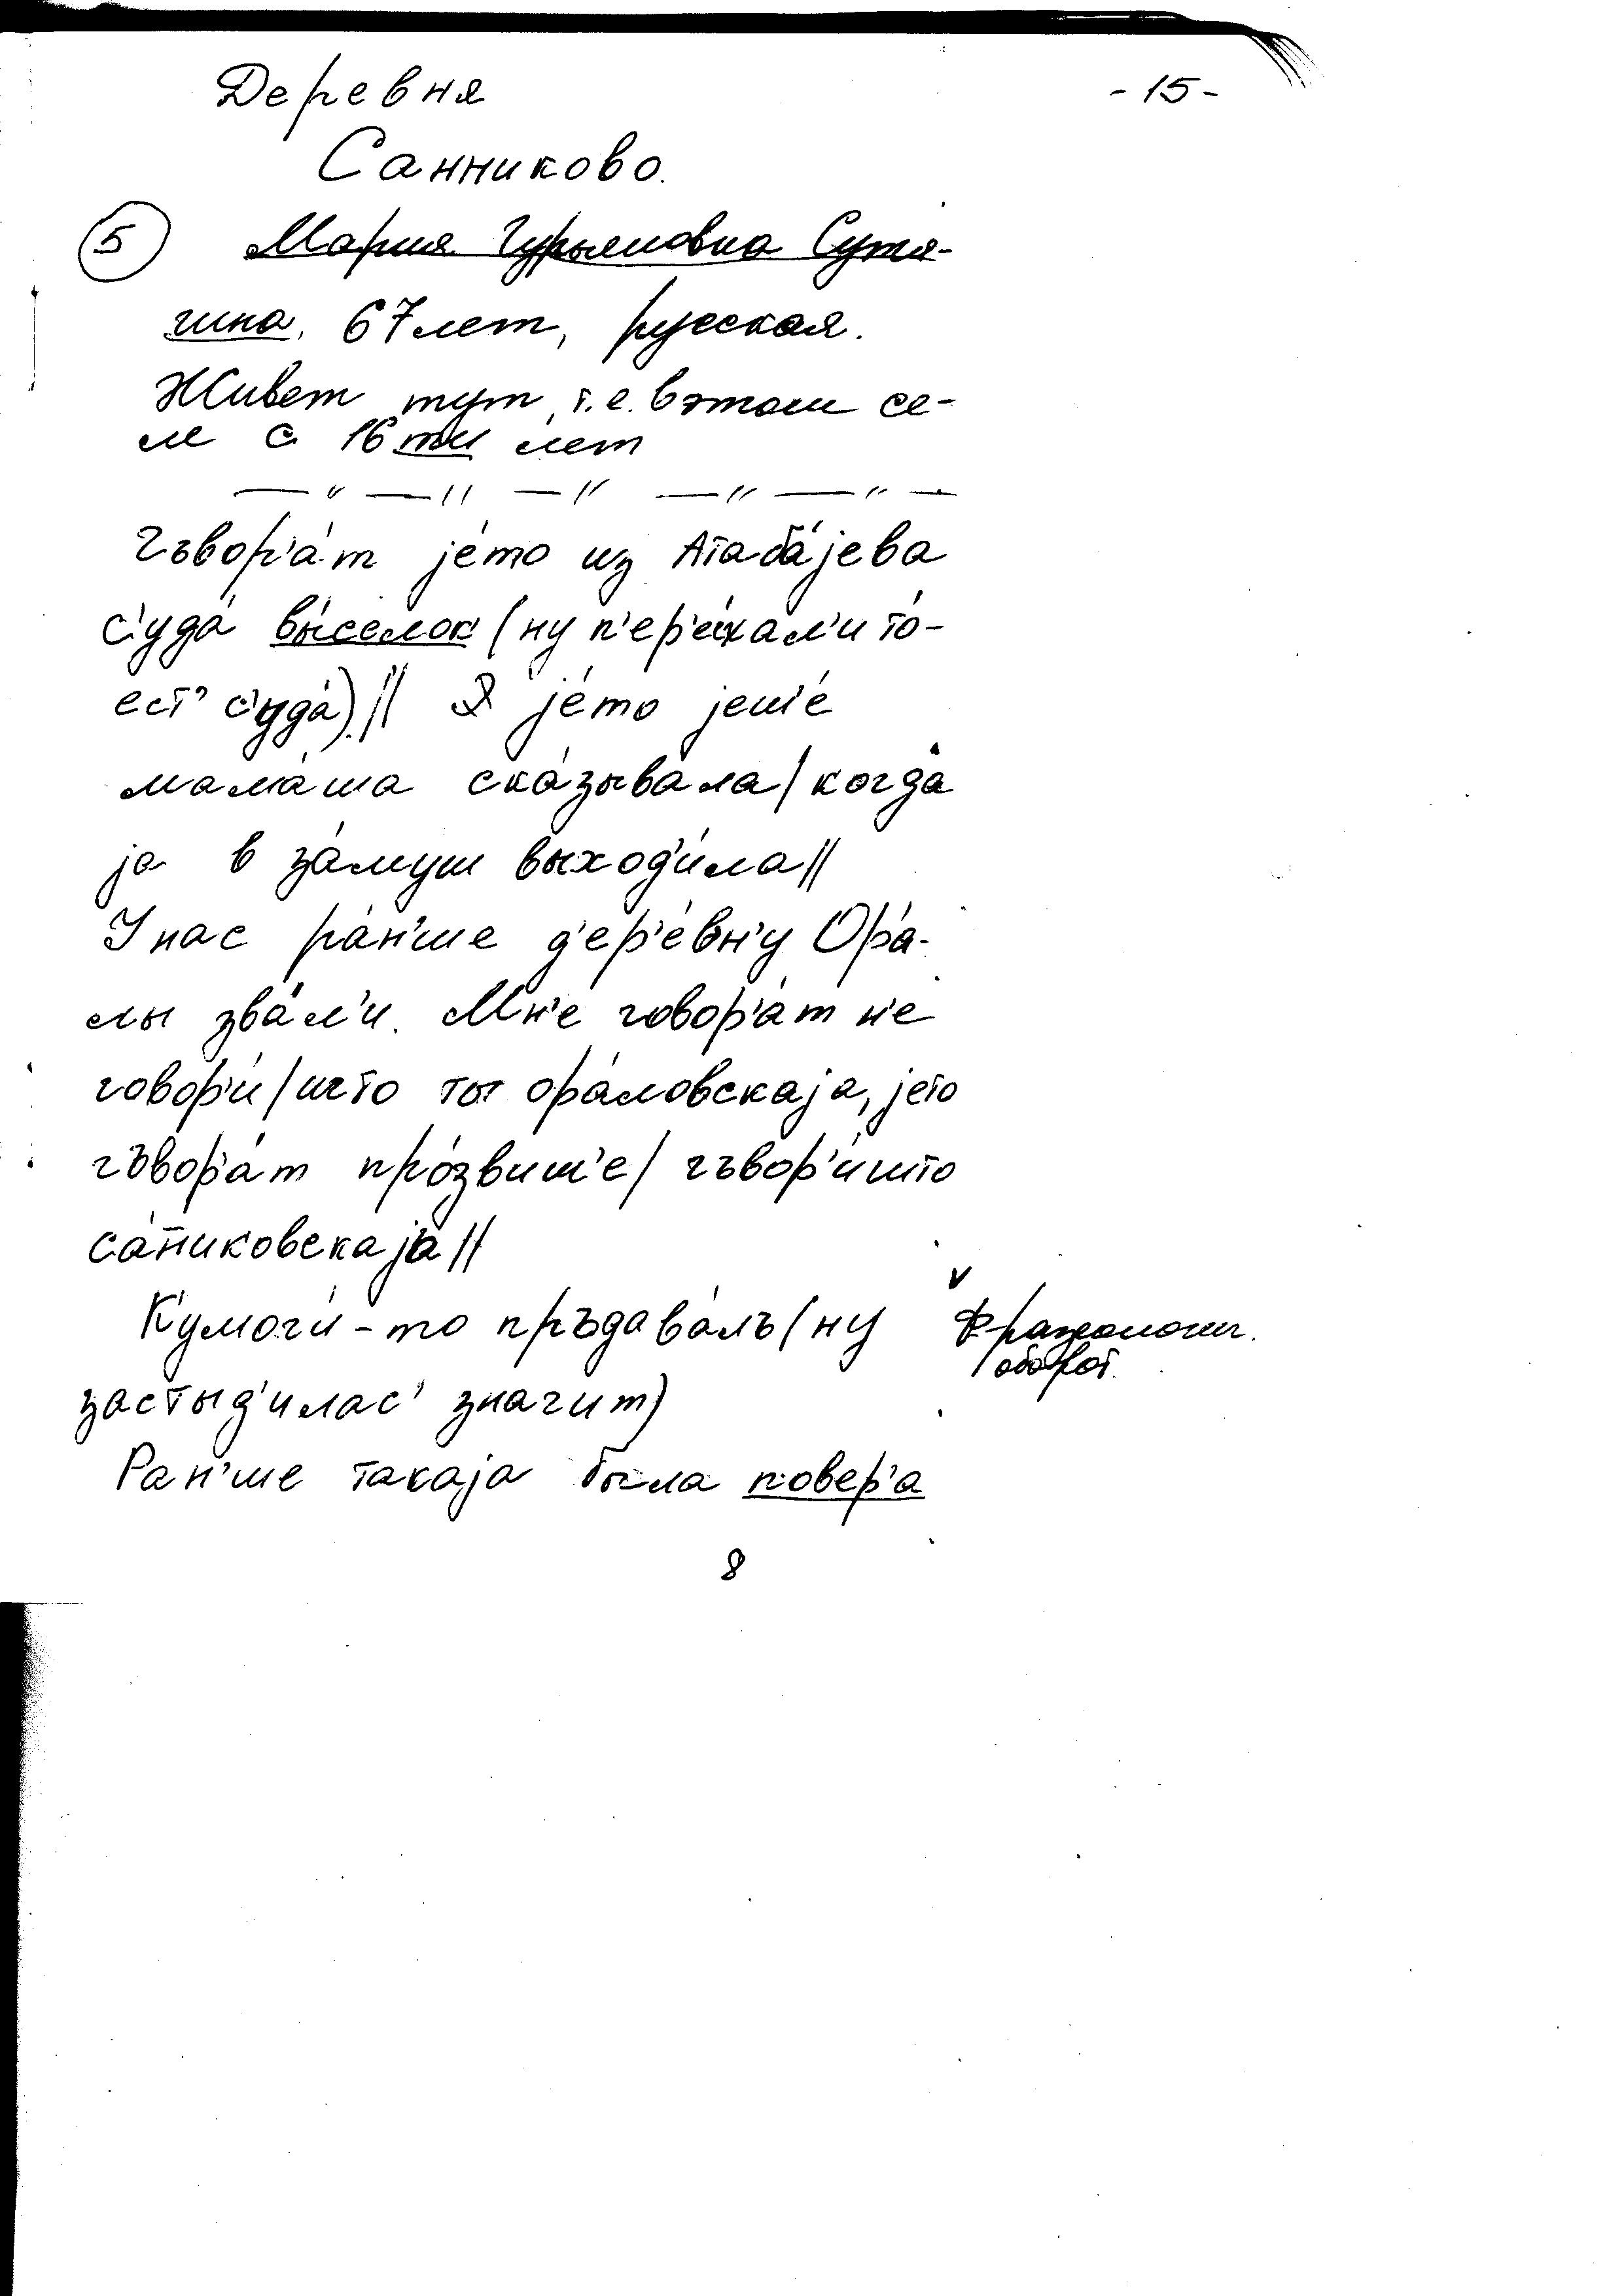 Деревня
- 15 -
Санниково.
5 Мария Гурьяновна Сутя-
гина. 67 лет, русская.
Живет тут, т.е. в этом се-
ле с 16ти лет
— " — " — " — " — " —
Гъвор'а́т је́то из Атаба́јева
с'уда́ вы́селок (ну п'ер'е́хал'и то́-
ест' с'уда́) || Я је́то јеш'е́
мама́ша ска́зывала / когда́
ја в за́муш выход'и́ла ||
У нас ра́н'ше д'ер'е́вн'у Ора́-
лы зва́л'и. Мн'е говор'а́т н'е
говор'и́ / што ты ора́ловскаја, јето
гъвор'а́т про́звиш'е / гъвор'и́ што
са́н̄иковскаја ||
Кумоги́-то пръдава́лъ (ну
Фразеологич.
оборот.
застыд'илас' значит)
Ран'ше такаја была повер'а
8